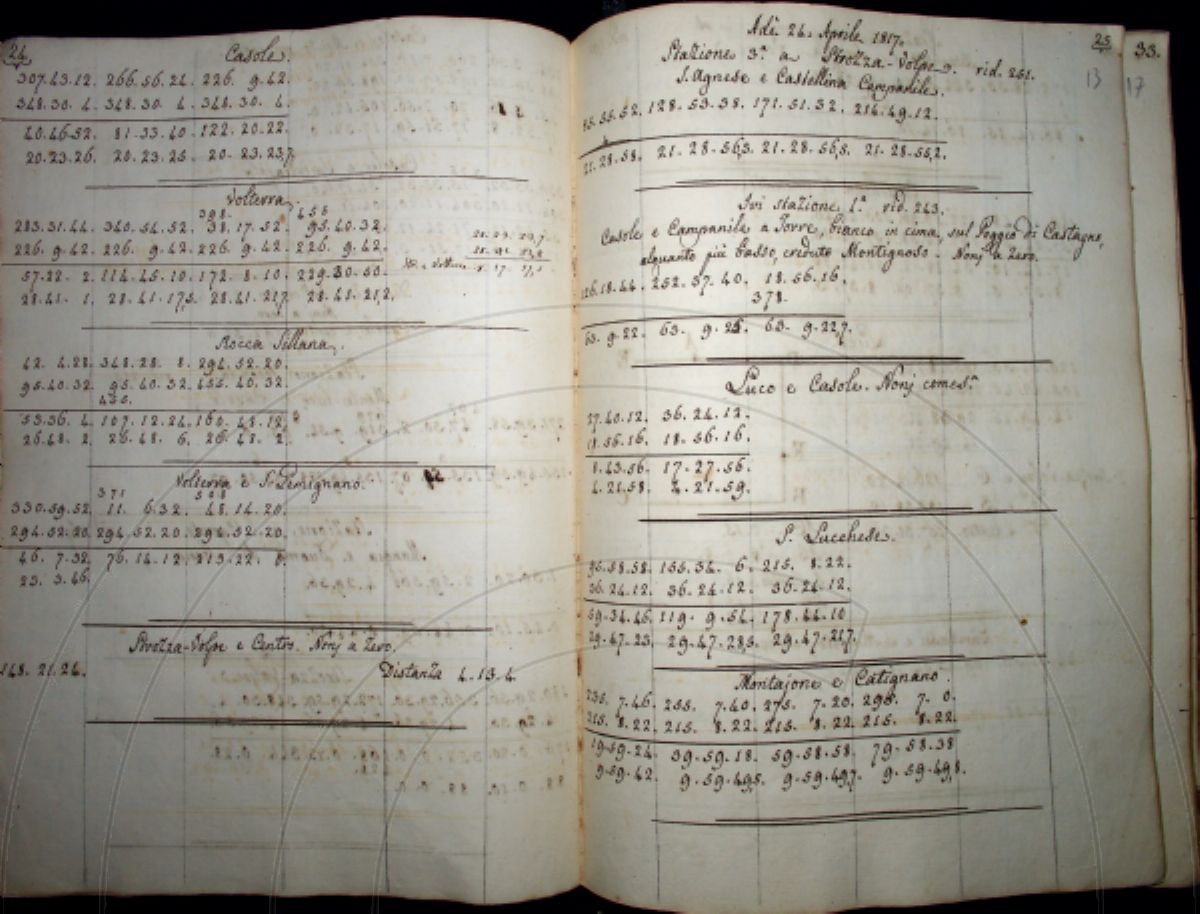 24.
Casole.
307.43.12. 266.56.24. 226. 9.42.
348.30. 4. 348.30. 4. 348.30. 4.
40.46.52. 81.33.40. 122.20.22.
20.23.26. 20.23.25. 20.23.23,7.
Volterra.
398. 455
283.31.44. 340.54.52. 38.17.52. 95.40.32.
226. 9.42. 226. 9.42. 226. 9.42. 226. 9.42.
57.22. 2. 114.45.10. 172. 8.10. 229.30.50.
28.41. 1. 28.41.17,5. 28.41.21,7. 28.41.21,2.
Rocca Sillana.
42. 4.28. 348.28. 8. 294.52.20.
95.40.32. 95.40.32. 455.40.32.
455.
53.36. 4. 107.12.24. 160.48.12.
26.48. 2. 26.48. 6. 26.48. 2.
Volterra e S. Gemignano.
371 508
330.59.52. 11. 6.32. 48.14.20.
294.52.20. 294.52.20. 294.52.20.
46. 7.32. 76.14.12. 213.22. 0.
23. 3.46.
Strozza-Volpe e Centos. Nonj a Zero.
148.21.24. Distanza 4.13.4.
25.
33.
13 17
Adì 24. Aprile 1817.
Stazione 3.a a Strozza-Volpe. rid. 251.
S. Agnese e Castellina Campanile.
128.53.38. 171.51.32. 214.49.12.
21.28.58. 21.28.56,3. 21.28.56,5. 21.28.55,2.
Ivi stazione 1.a rid. 243.
Casole e Campanile a Torre, bianco in cima, sul Poggio di Castagno,
alquanto più basso, creduto Montignoso. Nonj a Zero.
126.18.44. 252.37.40. 18.56.16.
378.
63. 9.22. 63. 9.25. 63. 9.22,7.
Luco e Casole. Nonj come s.a
27.40.12. 36.24.12.
18.56.16. 18.56.16.
8.43.56. 17.27.56.
4.21.58. 4.21.59.
S. Lucchese.
95.58.58. 155.34. 6. 215. 8.22.
36.24.12. 36.24.12. 36.24.12.
59.34.46. 119. 9.54. 178.44.10
29.47.23. 29.47.28,5. 29.47.21,7.
Montajone e Catignano.
235. 7.46. 255. 7.40. 275. 7.20. 295. 7. 0.
215. 8.22. 215. 8.22. 215. 8.22. 215. 8.22.
19.59.24. 39.59.18. 59.58.58. 79.58.38
9.59.42. 9.59.49,5. 9.59.49,7. 9.59.49,8.